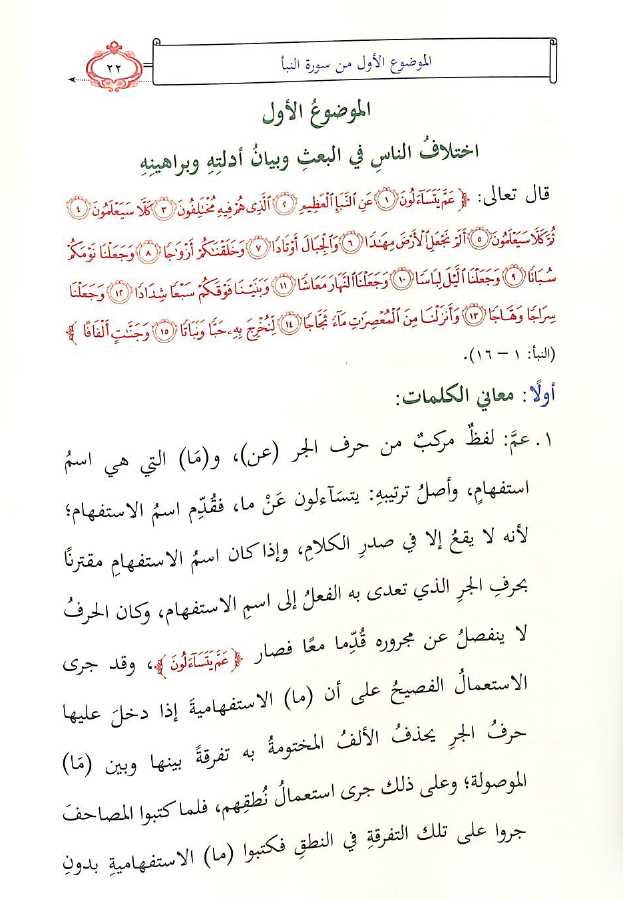 الموضوع الأول من سورة النبأ
٢٢
الموضوعُ الأول
اختلافُ الناسِ في البعثِ وبيانُ أدلتِهِ وبراهينِهِ
قال تعالى: ﴿ عَمَّ يَتَسَآءَلُونَ ١ عَنِ ٱلنَّبَإِ ٱلْعَظِيمِ ٢ ٱلَّذِى هُمْ فِيهِ مُخْتَلِفُونَ ٣ كَلَّا سَيَعْلَمُونَ ٤
ثُمَّ كَلَّا سَيَعْلَمُونَ ٥ أَلَمْ نَجْعَلِ ٱلْأَرْضَ مِهَٰدًا ٦ وَٱلْجِبَالَ أَوْتَادًا ٧ وَخَلَقْنَٰكُمْ أَزْوَٰجًا ٨ وَجَعَلْنَا نَوْمَكُمْ
سُبَاتًا ٩ وَجَعَلْنَا ٱلَّيْلَ لِبَاسًا ١٠ وَجَعَلْنَا ٱلنَّهَارَ مَعَاشًا ١١ وَبَنَيْنَا فَوْقَكُمْ سَبْعًا شِدَادًا ١٢ وَجَعَلْنَا
سِرَاجًا وَهَّاجًا ١٣ وَأَنزَلْنَا مِنَ ٱلْمُعْصِرَٰتِ مَآءً ثَجَّاجًا ١٤ لِّنُخْرِجَ بِهِۦ حَبًّا وَنَبَاتًا ١٥ وَجَنَّٰتٍ أَلْفَافًا ﴾
(النبأ: ١ – ١٦).
أولًا: معاني الكلمات:
١. عمَّ: لفظٌ مركبٌ من حرف الجر (عن)، و(مَا) التي هي اسمُ
استفهامٍ، وأصلُ ترتيبهِ: يتسآءلون عَنْ ما، فقُدِّم اسمُ الاستفهام؛
لأنه لا يقعُ إلا في صدرِ الكلامِ، وإذا كان اسمُ الاستفهامِ مقترنًا
بحرفِ الجرِ الذي تعدى به الفعلُ إلى اسمِ الاستفهام، وكان الحرفُ
لا ينفصلُ عن مجروره قُدِّما معًا فصار ﴿ عَمَّ يَتَسَآءَلُونَ ﴾، وقد جرى
الاستعمالُ الفصيحُ على أن (ما) الاستفهاميةَ إذا دخلَ عليها
حرفُ الجرِ يحذفُ الألفُ المختومةُ به تفرقةً بينها وبين (مَا)
الموصولة؛ وعلى ذلك جرى استعمالُ نُطقِهم، فلما كتبوا المصاحفَ
جروا على تلك التفرقةِ في النطقِ فكتبوا (ما) الاستفهاميةِ بدونِ